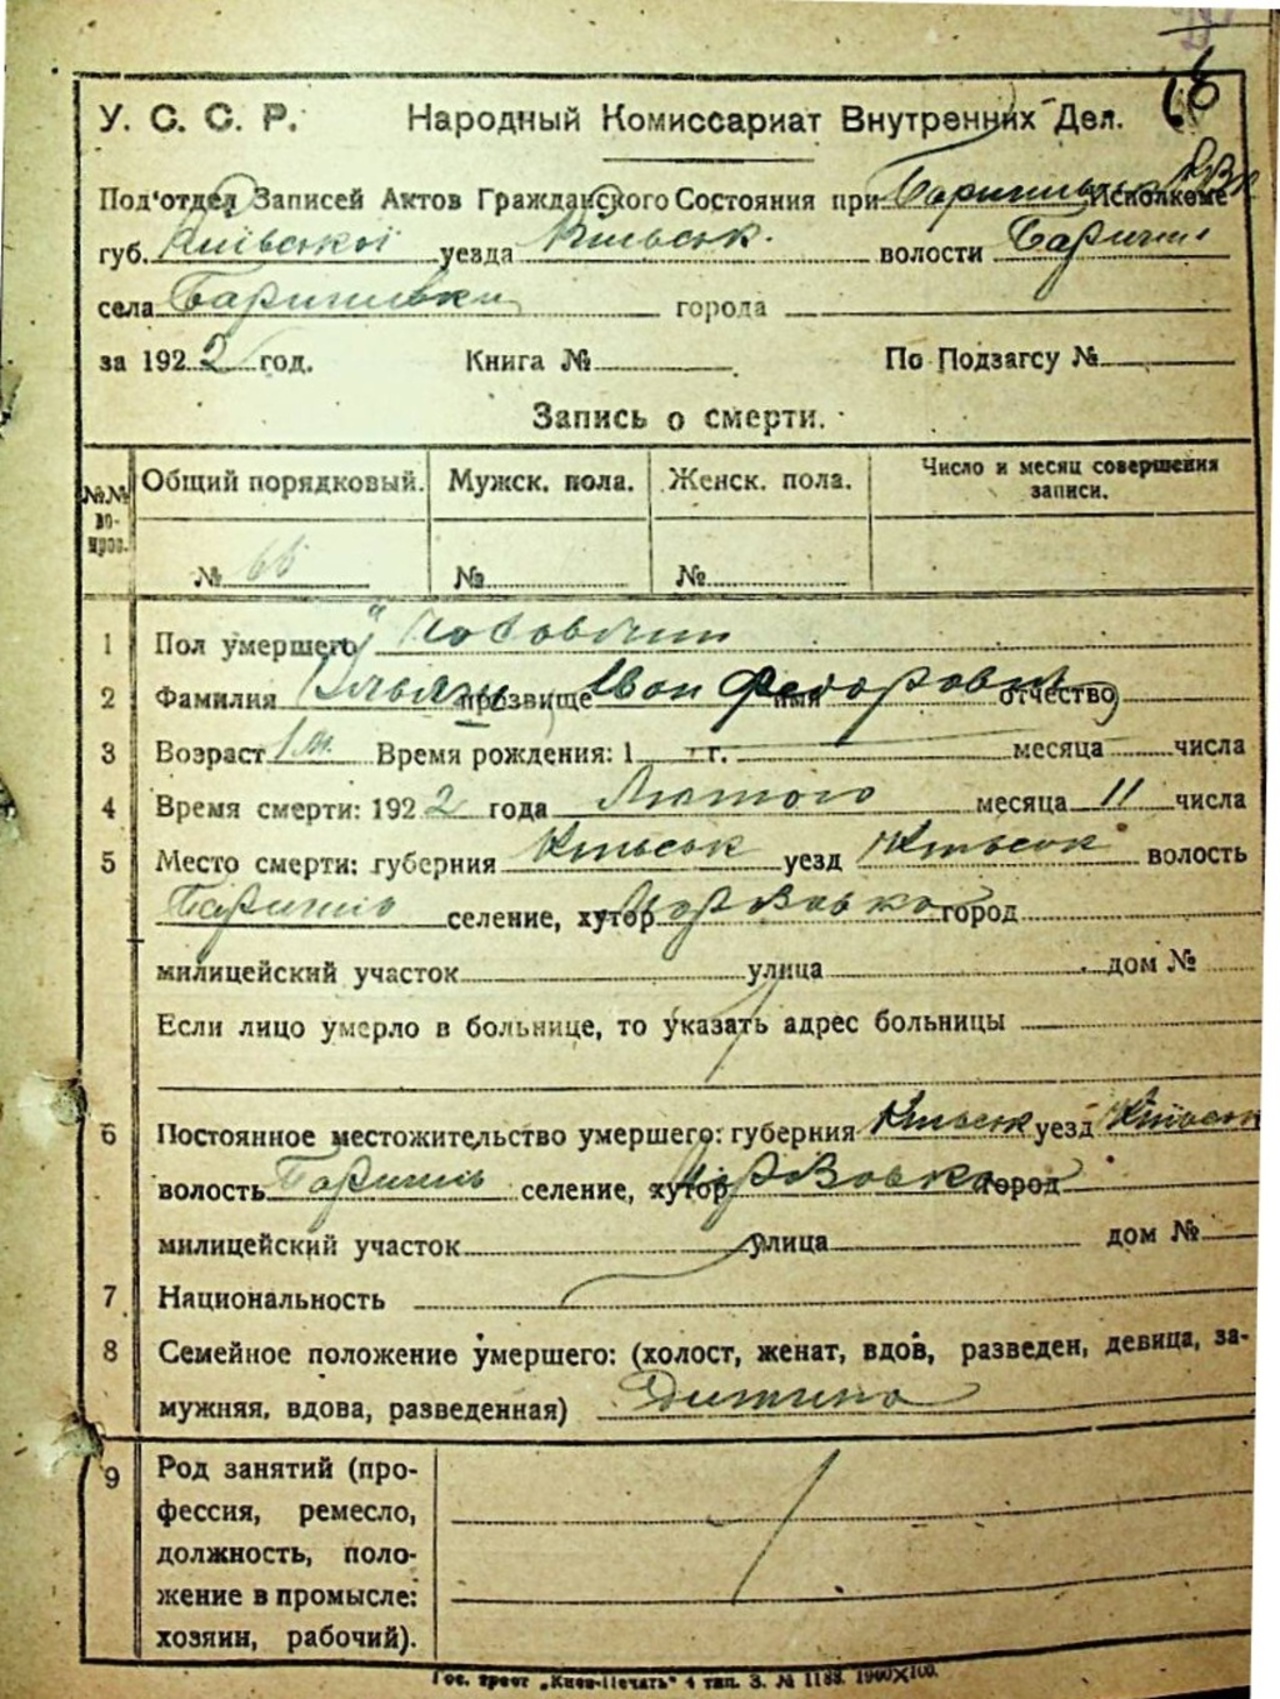 68
У. С. С. Р. Народный Комиссариат Внутренних Дел.
Под'отдел Записей Актов Гражданского Состояния при Исполкоме
губ. Київської уезда Київськ. волости Баришп
села Баришівки города
за 1922 год. Книга № По Подзагсу №
Запись о смерти.
№№ вопрос. Общий порядковый. Мужск. пола. Женск. пола. Число и месяц совершения записи.
№ 66 № №
1 Пол умершего Чоловічий
2 Фамилия прозвище Іван имя Федорович отчество
3 Возраст 1 м. Время рождения: 1 г. месяца числа
4 Время смерти: 1922 года Лютого месяца 11 числа
5 Место смерти: губерния Київськ уезд Київськ волость
селение, хутор город
милицейский участок улица дом №
Если лицо умерло в больнице, то указать адрес больницы
6 Постоянное местожительство умершего: губерния Київськ уезд Київськ
волость селение, хутор город
милицейский участок улица дом №
7 Национальность
8 Семейное положение умершего: (холост, женат, вдов, разведен, девица, за-
мужняя, вдова, разведенная) Дитина
9 Род занятий (про-
фессия, ремесло,
должность, поло-
жение в промысле:
хозяин, рабочий).
Гос. трест „Киев-Печать" 4 тип. З. № 1188. 1900✕100.